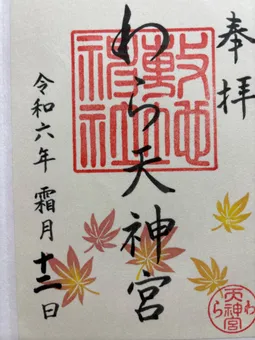 奉拝
敷地神社
わら天神宮
令和六年 霜月 十二日
わら天神宮